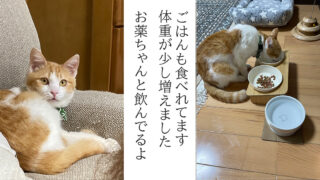 ごはんも食べれてます
体重が少し増えました
お薬ちゃんと飲んでるよ